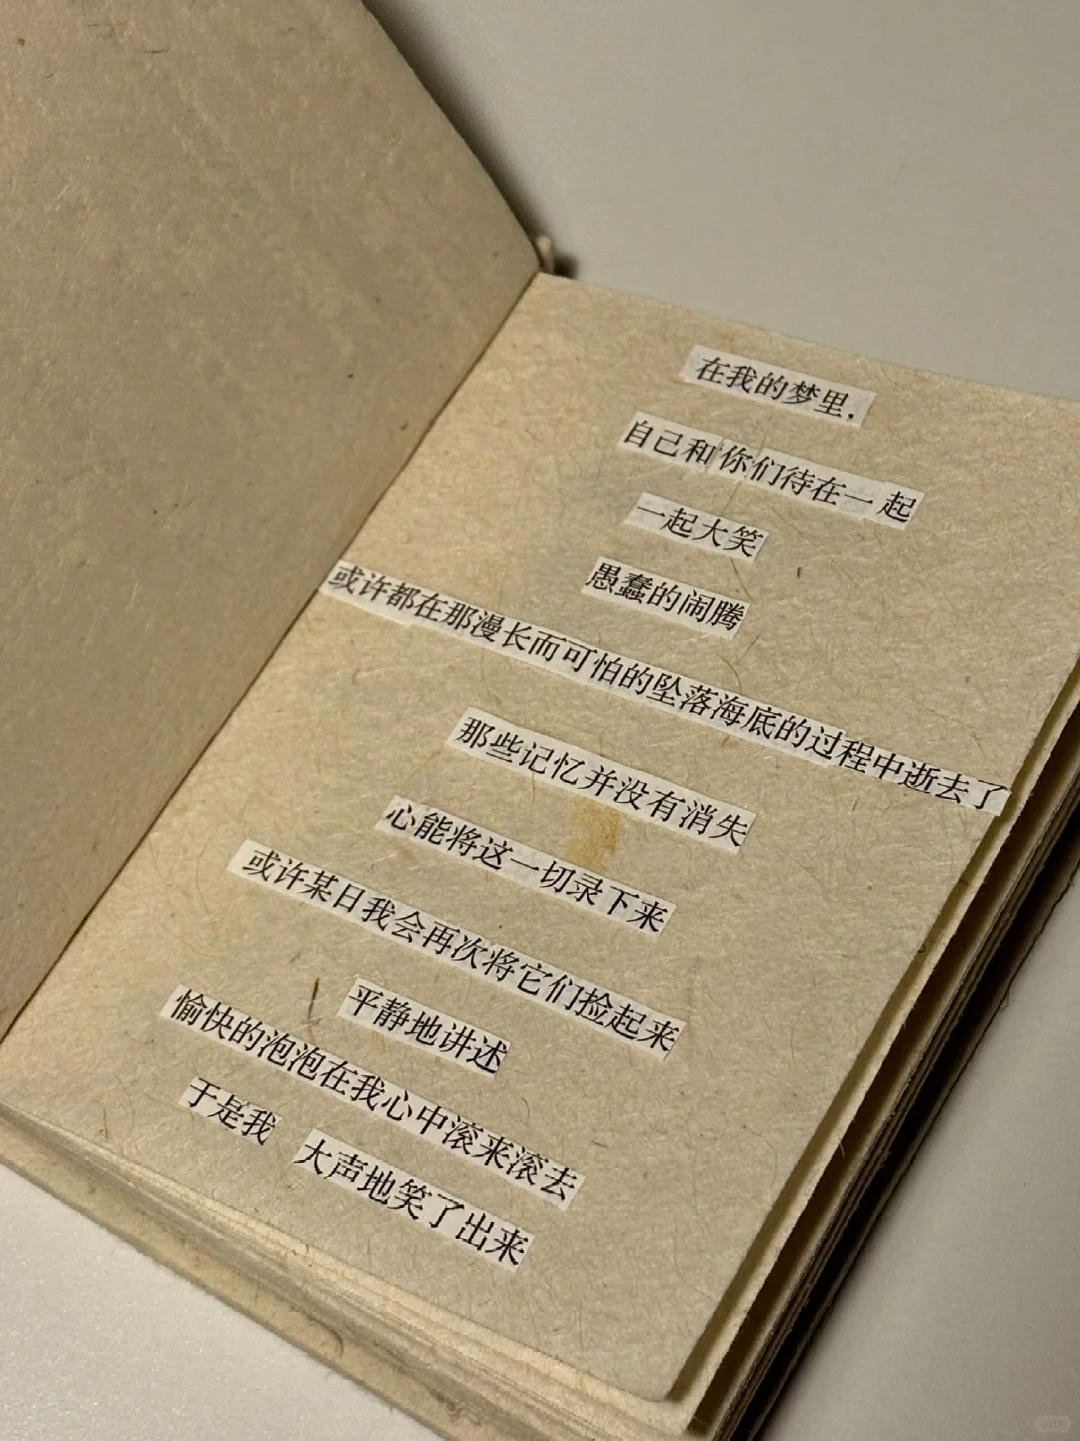 在我的梦里，
自己和你们待在一起
一起大笑
愚蠢的闹腾
或许都在那漫长而可怕的坠落海底的过程中逝去了
那些记忆并没有消失
心能将这一切录下来
或许某日我会再次将它们捡起来
平静地讲述
愉快的泡泡在我心中滚来滚去
于是我 大声地笑了出来